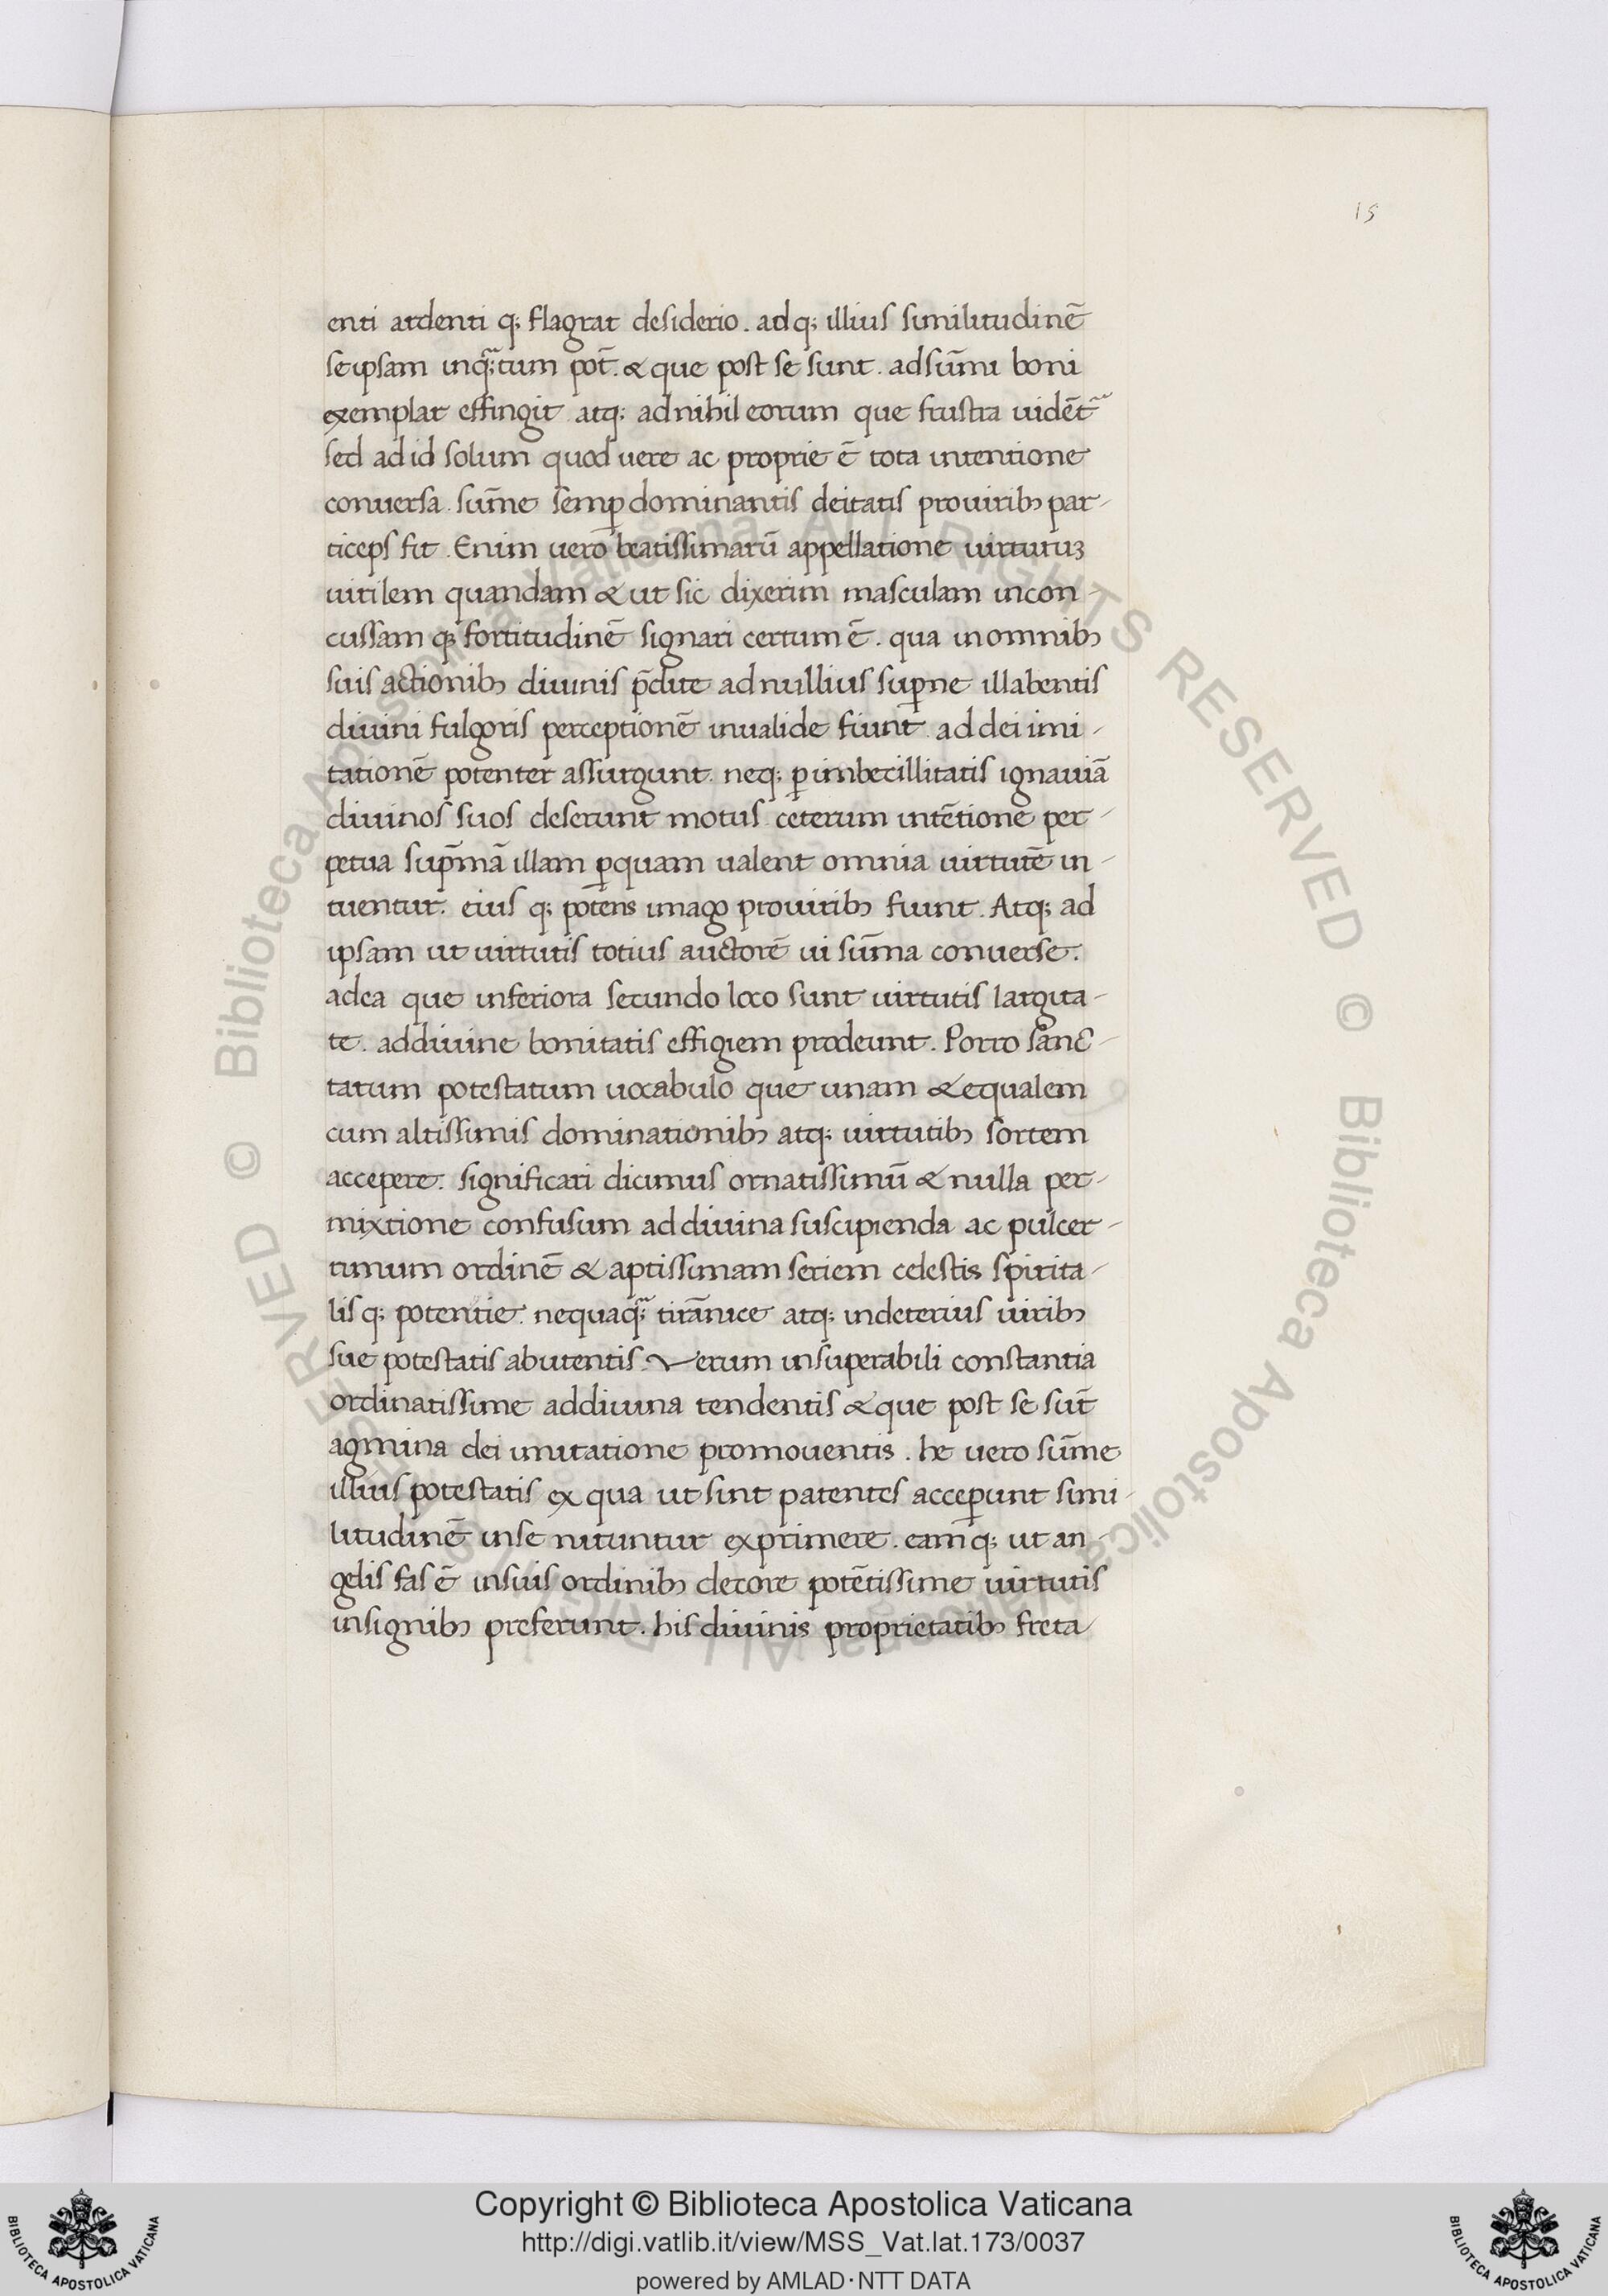 15
enti ardenti q; flagrat desiderio. adq; illius similitudinē
seipsam inq̃;tum pot̄. & que post se sunt. adsūmi boni
exemplar effingit. atq; adnihil eorum que frustra uidēt᷑
sed ad id solum quod uere ac proprie ē tota intentione
conuersa. sūme semꝑ dominantis deitatis prouirib; par-
ticeps fit. Enim uero beatissimarū appellatione uirtutuꝫ
uirilem quandam & ut sic dixerim masculam incon-
cussam q; fortitudinē signari certum ē. qua in omnib;
suis actionib; diuinis p̄dite ad nullius suꝑne illabentis
diuini fulgoris perceptionē inualide fiunt. ad dei imi-
tationē potenter assurgunt. neq; ꝑ imbecillitatis ignauiā
diuinos suos deserunt motus. ceterum intētione per-
petua sup̄mā illam ꝑquam ualent omnia uirtutē in-
tuentur. eius q; potens imago prouirib; fiunt. Atq; ad
ipsam ut uirtutis totius auctorē ui sūma conuerse.
adea que inferiora secundo loco sunt uirtutis largita-
te. addiuine bonitatis effigiem prodeunt. Porro sanc-
tatum potestatum uocabulo que unam & equalem
cum altissimis dominationib; atq; uirtutib; sortem
accepere. significari dicimus ornatissimū & nulla per-
mixtione confusum ad diuina suscipienda ac pulcer-
rimum ordinē & aptissimam seriem celestis spirita-
lis q; potentie. nequaq̃; tirānice atq; indeterius uirib;
sue potestatis abutentis. Verum insuperabili constantia
ordinatissime addiuina tendentis & que post se sūt
agmina dei imitatione promouentis. he uero sūme
illius potestatis ex qua ut sint patentes acceꝑunt simi-
litudinē inse nituntur exprimere. eam q; ut an-
gelis fas ē insuis ordinib; decore potētissime uirtutis
insignib; preferunt. his diuinis proprietatib; freta
© Biblioteca Apostolica Vaticana ALL RIGHTS RESERVED
© Biblioteca Apostolica Vaticana ALL RIGHTS RESERVED
Copyright © Biblioteca Apostolica Vaticana
http://digi.vatlib.it/view/MSS_Vat.lat.173/0037
powered by AMLAD·NTT DATA
BIBLIOTECA APOSTOLICA VATICANA
BIBLIOTECA APOSTOLICA VATICANA